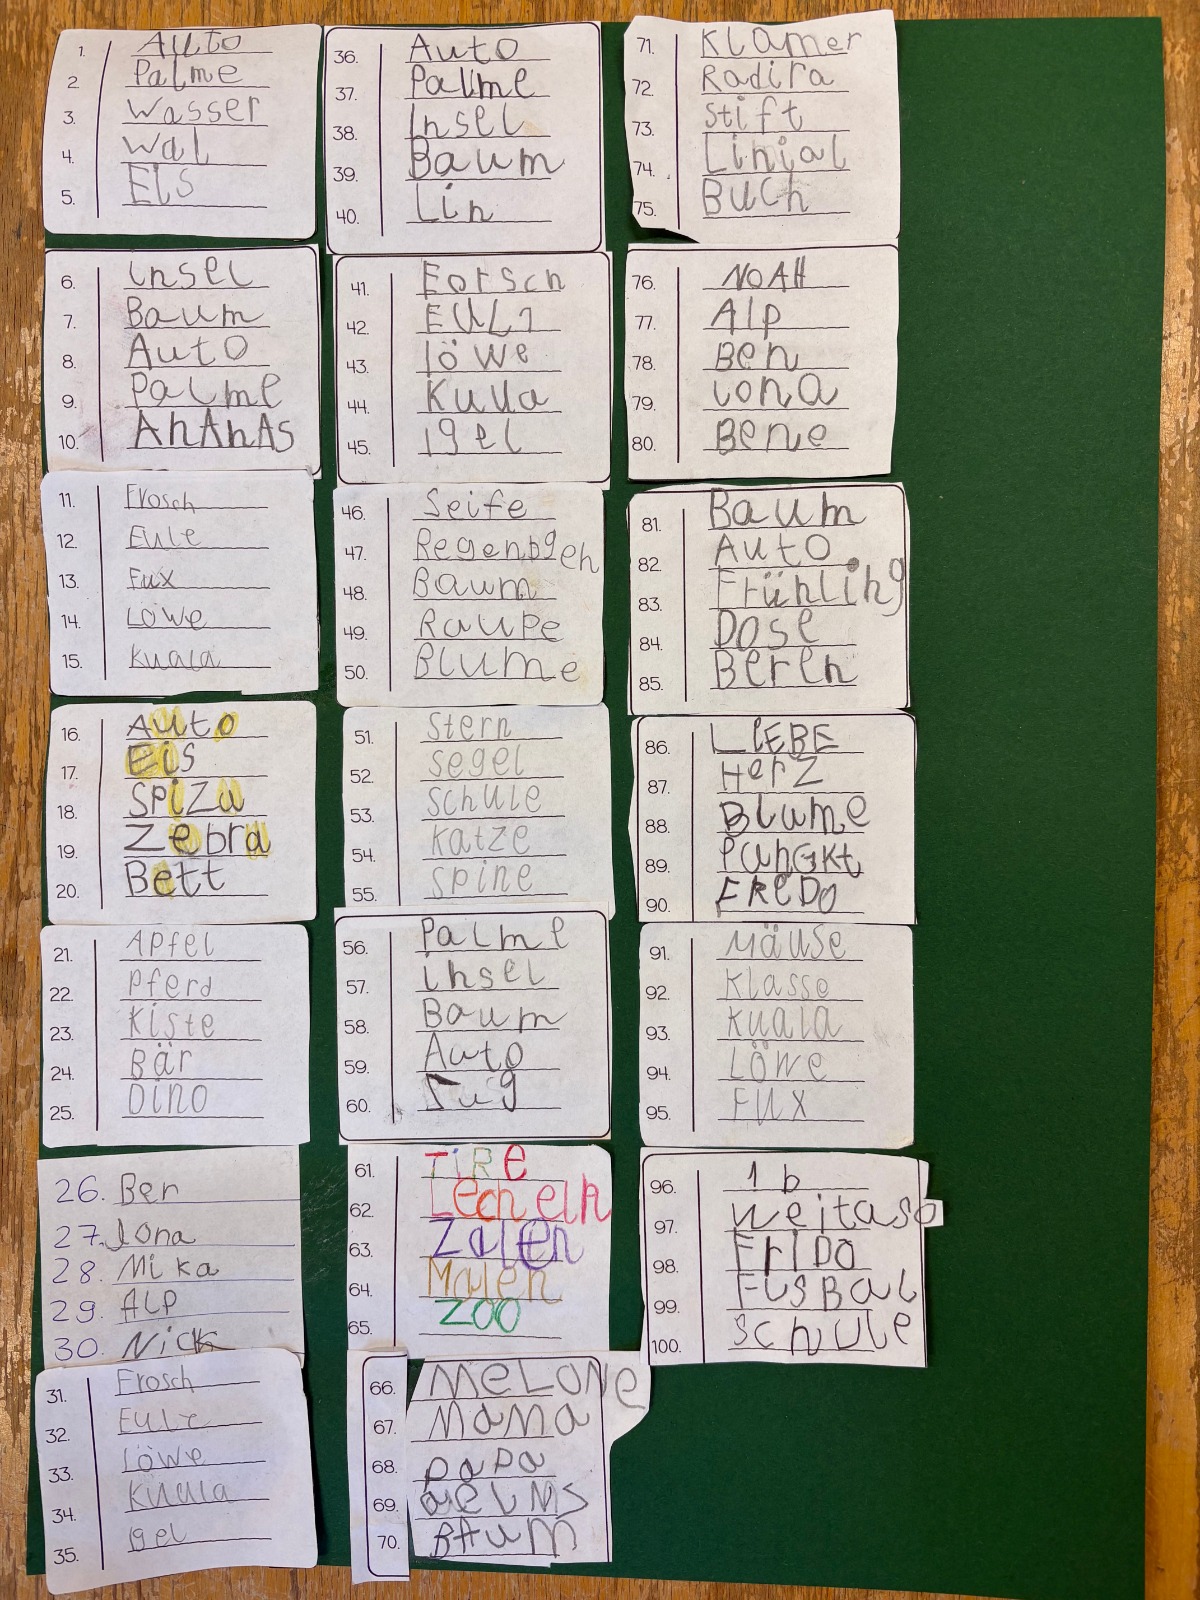 1. Auto
2. Palme
3. Wasser
4. Wal
5. Eis
6. Insel
7. Baum
8. Auto
9. Palme
10. AnAnAs
11. Frosch
12. Eule
13. Fux
14. Löwe
15. Kuala
16. Auto
17. Eis
18. SpiZa
19. Zebra
20. Bett
21. Apfel
22. Pferd
23. Kiste
24. Bär
25. Dino
26. Ben
27. Jona
28. Mika
29. Alp
30. Nick
31. Frosch
32. Eule
33. Löwe
34. Kuala
35. igel
36. Auto
37. Palme
38. Insel
39. Baum
40. Lin
41. Forsch
42. EUL
43. löwe
44. Kulla
45. igel
46. Seife
47. Regenbogen
48. Baum
49. Raupe
50. Blume
51. Stern
52. Segel
53. Schule
54. Katze
55. Spine
56. Palme
57. insel
58. Baum
59. Auto
60. Zug
61. TiRe
62. Lecheln
63. Zalen
64. Malen
65. Zoo
66. MeLONe
67. MaMa
68. PaPa
69.
70. BAuM
71. Klamer
72. Radira
73. Stift
74. Linial
75. Buch
76. NOAH
77. Alp
78. Ben
79. Jona
80. Bene
81. Baum
82. Auto
83. Frühling
84. Dose
85. Beren
86. LIEBE
87. HerZ
88. Blume
89. PanGKt
90. FReDO
91. Mäuse
92. Klasse
93. Kuala
94. Löwe
95. Fux
96. 1b
97. weitaso
98. FriDO
99. FusBal
100. Schule